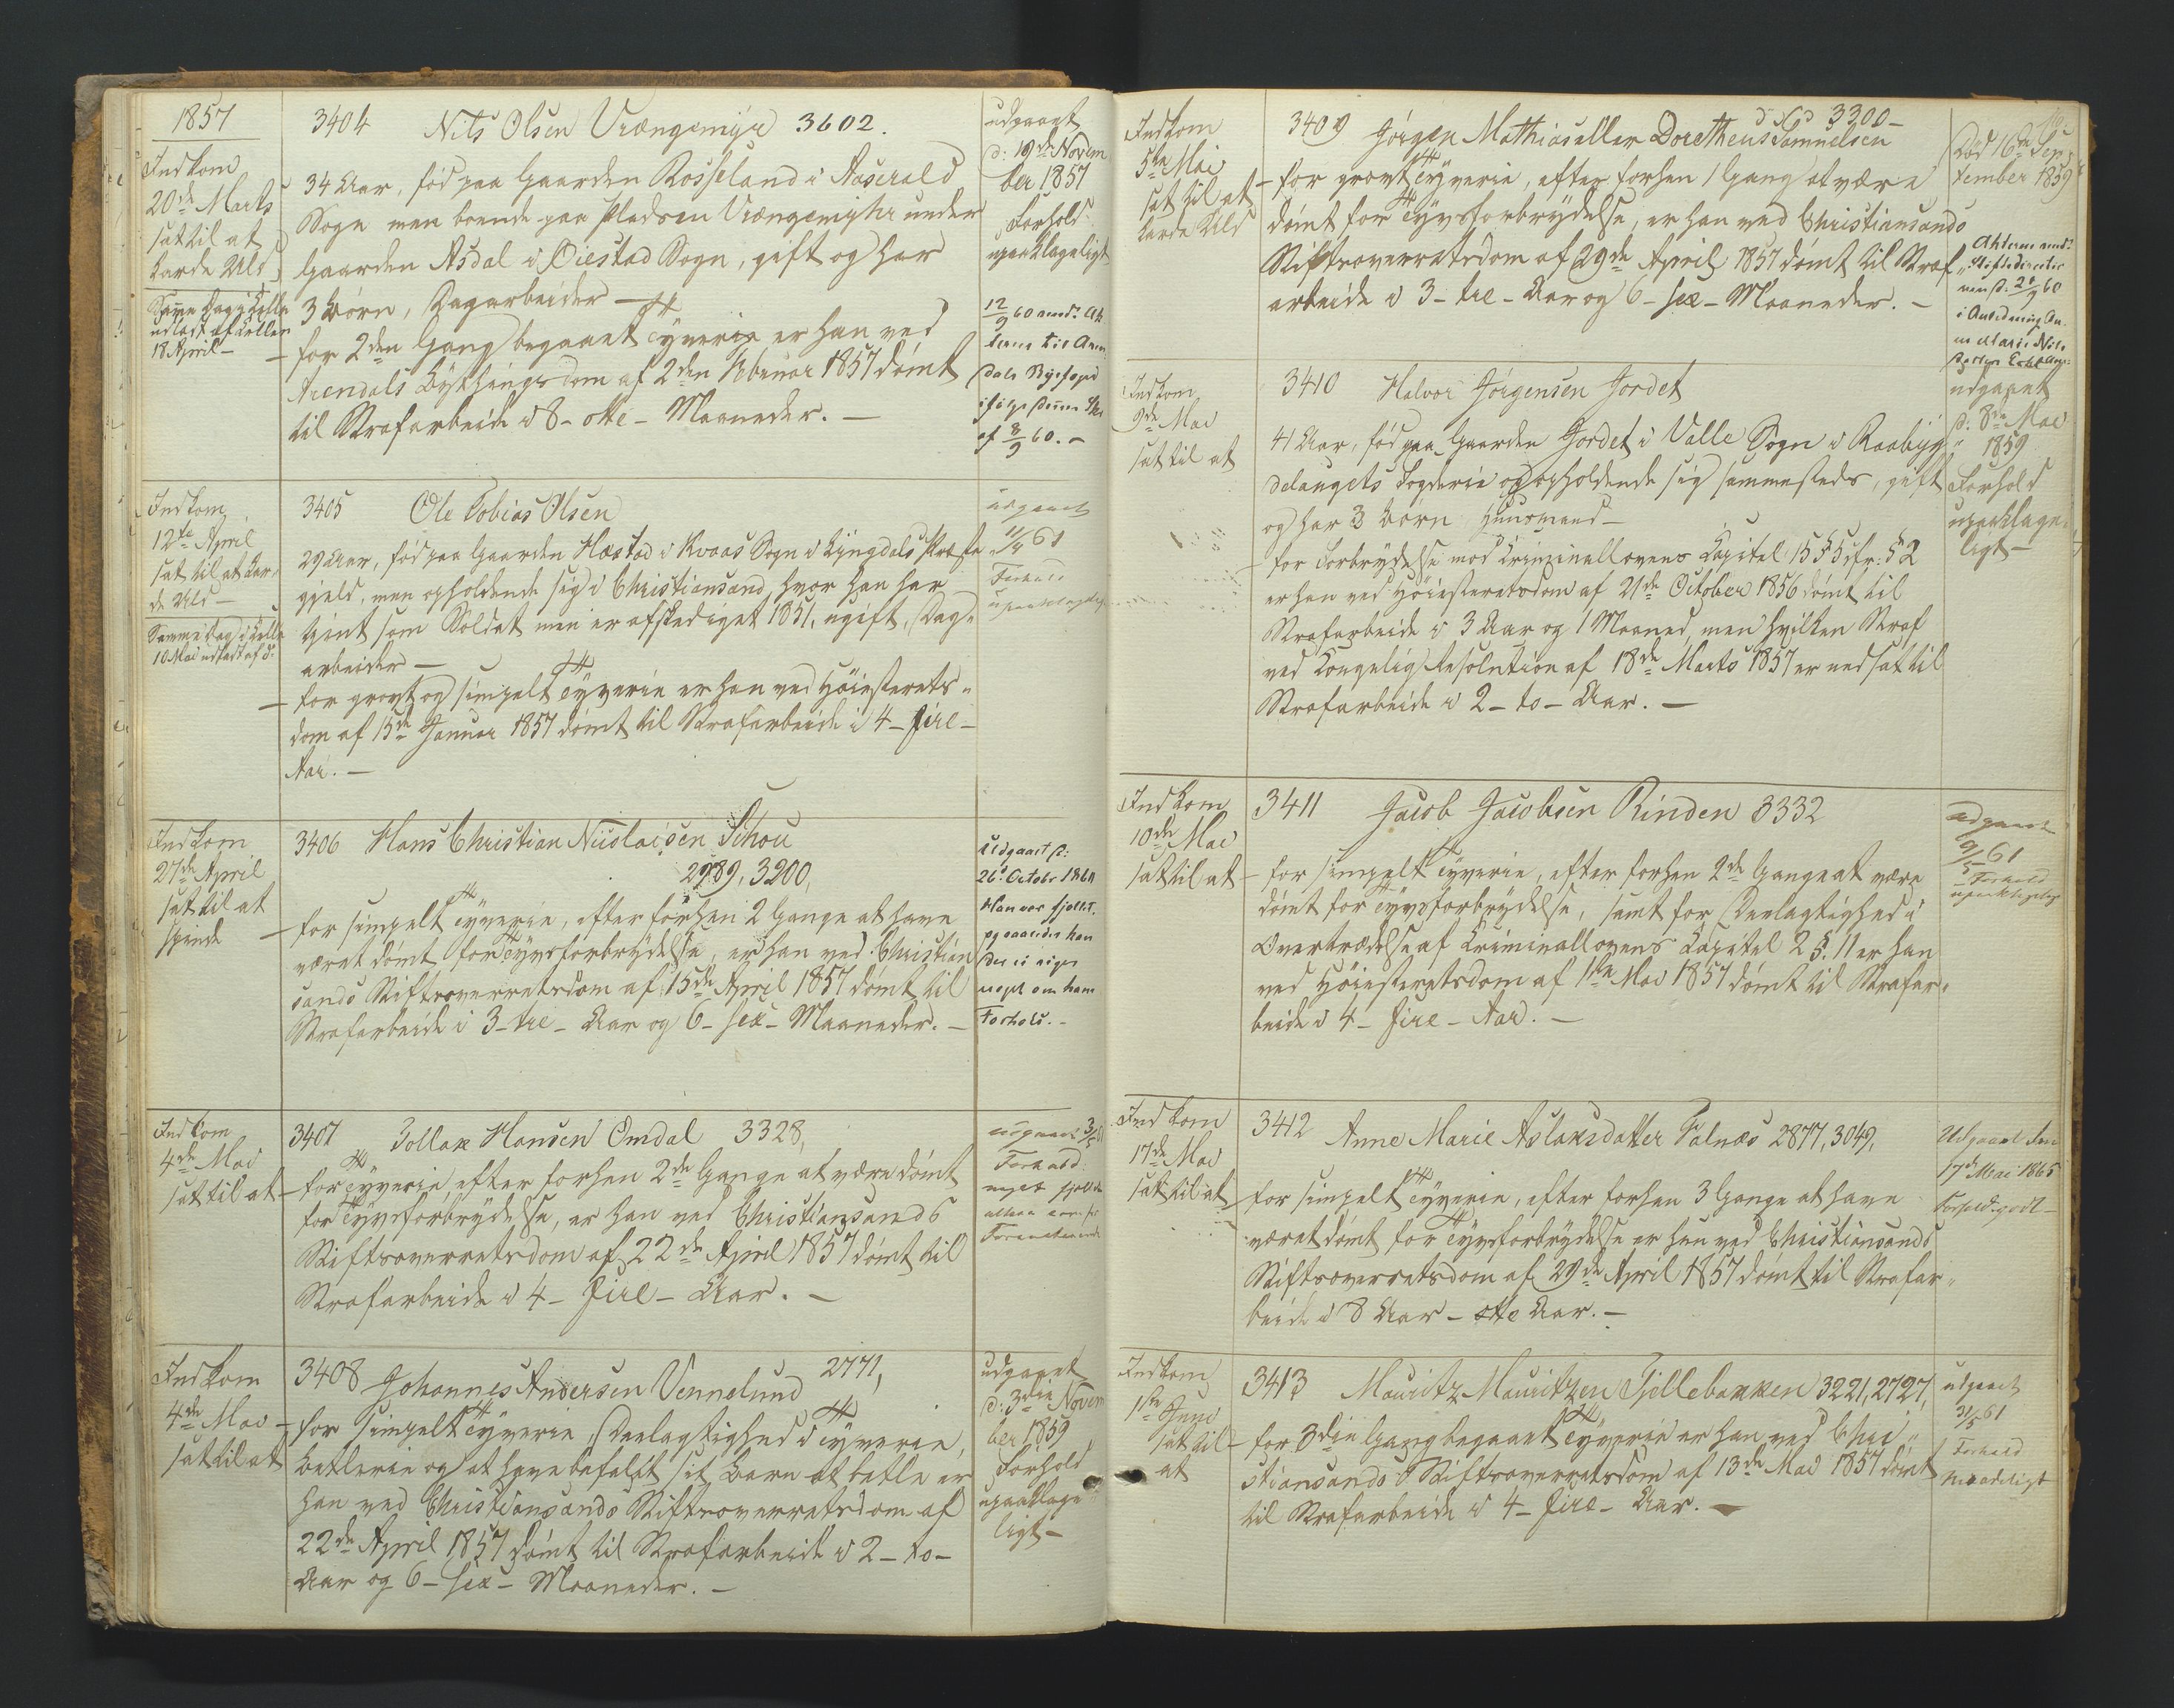 1857
Indkom
20de Marts
sat til at
karde Uld
Samme Dag i Celle
udladt af Cellen
18 April —
3404 Nils Olsen Vrængemyr 3602.
34 Aar, fød paa Gaarden Rosseland i Aaserald
Sogn men boende paa Pladsen Vrængemyhr under
Gaarden Asdal i Øiestad Sogn, gift og har
3 Børn, Dagarbeider —
— for 2den Gang begaaet Tyverie er han ved
Arendals Bythingsdom af 2den Februar 1857 dømt
til Strafarbeide i 8 - otte - Maaneder. —
udgaaet
d: 19de Novem
ber 1857
Forhold
upaaklageligt
12/9 60 med: At
til Aren
dals Byefoged
ifølge
af 8/9 60. —
Indkom
12te April
sat til at kar-
de Uld —
Samme Dag i Celle
10 Mai udladt af d:
3405 Ole Tobias Olsen
29 Aar, fød paa Gaarden Hæstad i Kvaas Sogn i Lyngdals Præste
gjeld, men opholdende sig i Christiansand, hvor han har
tjent som Soldat men er afskediget 1851, ugift, Dag-
arbeider —
— for grovt og simpelt Tyverie er han ved Høiesterets-
dom af 15de Januar 1857 dømt til Strafarbeide i 4 - fire -
Aar. —
udgaaet
11/4 61
Forhold
upaaklageligt
Indkom
27de April
sat til at
spinde
3406 Hans Christian Nicolaisen Schou
2989, 3200,
— for simpelt Tyverie, efter forhen 2 Gange at have
været dømt for Tyvsforbrydelse, er han ved Christian
sands Stiftsoverretsdom af 15de April 1857 dømt til
Strafarbeide i 3 - tre - Aar og 6 - sex - Maaneder. —
Udgaaet d:
26d Octobr 1860
Han var fjollet,
og saaledes kan
der ei siges
noget om hans
Forhold. —
Indkom
4de Mai
sat til at
3407 Tollak Hansen Omdal 3328,
— for Tyverie efter forhen 2de Gange at være dømt
for Tyvsforbrydelse, er han ved Christiansands
Stiftsoverretsdom af 22de April 1857 dømt til
Strafarbeide i 4 - fire - Aar. —
udgaaet 3/5 61
Forhold
Indkom
4de Mai
sat til at
3408 Johannes Andersen Vennelund 2771,
— for simpelt Tyverie, Deelagtighed i Tyverie,
Betlerie og at have befalet sit Barn at betle er
han ved Christiansands Stiftsoverretsdom af
22de April 1857 dømt til Strafarbeide i 2 - to -
Aar og 6 - sex - Maaneder. —
udgaaet
d: 3die Novem
ber 1859
Forhold
upaaklage
ligt —
Indkom
5te Mai
sat til at
karde Uld
3409 Jørgen Mathias eller Doretheus Samuelsen 3300 —
— for grovt Tyverie, efter forhen 1 Gang at være
dømt for Tyvsforbrydelse, er han ved Christiansands
Stiftsoverretsdom af 29de April 1857 dømt til Straf-
arbeide i 3 - tre - Aar og 6 - sex - Maaneder. —
Død 16de Sep-
tember 1859
i Anledning
Indkom
9de Mai
sat til at
3410 Halvor Jørgensen Jordet
41 Aar, fød paa Gaarden Jordet i Valle Sogn i Raabyg-
delaugets Fogderie og opholdende sig sammesteds, gift
og har 3 Børn Huusmand —
— for Forbrydelse mod Criminallovens Capitel 15 § 5 cfr: § 2
er han ved Høiesteretsdom af 21de October 1856 dømt til
Strafarbeide i 3 Aar og 1 Maaned, men hvilken Straf
ved Kongelig Resolution af 18de Marts 1857 er nedsat til
Strafarbeide i 2 - to - Aar. —
udgaaet
d: 8de Mai
1859
Forhold
upaaklage-
ligt —
Indkom
10de Mai
sat til at
3411 Jacob Jacobsen Rinden 3332
— for simpelt Tyverie, efter forhen 2de Gange at være
dømt for Tyvsforbrydelse, samt for Deelagtighed i
Overtrædelse af Criminallovens Capitel 2 §. 11 er han
ved Høiesteretsdom af 1ste Mai 1857 dømt til Strafar-
beide i 4 - fire - Aar. —
udgaaet
9/5 61
Forhold
upaaklageligt
Indkom
17de Mai
sat til at
3412 Anne Marie Aslaksdatter Falnæs 2877, 3049,
— for simpelt Tyverie, efter forhen 3 Gange at have
været dømt for Tyvsforbrydelse er hun ved Christiansands
Stiftsoverretsdom af 29de April 1857 dømt til Strafar-
beide i 8 Aar - otte Aar. —
Udgaaet den
17de Mai 1865
Forhold: godt —
Indkom
1ste Juni
sat til
at
3413 Mauritz Mauritzen Tjellebakken 3221, 2727,
— for 3die Gang begaaet Tyverie er han ved Chri-
stiansands Stiftsoverretsdom af 13de Mai 1857 dømt
til Strafarbeide i 4 - fire - Aar. —
udgaaet
31/5 61
Forhold
maadeligt